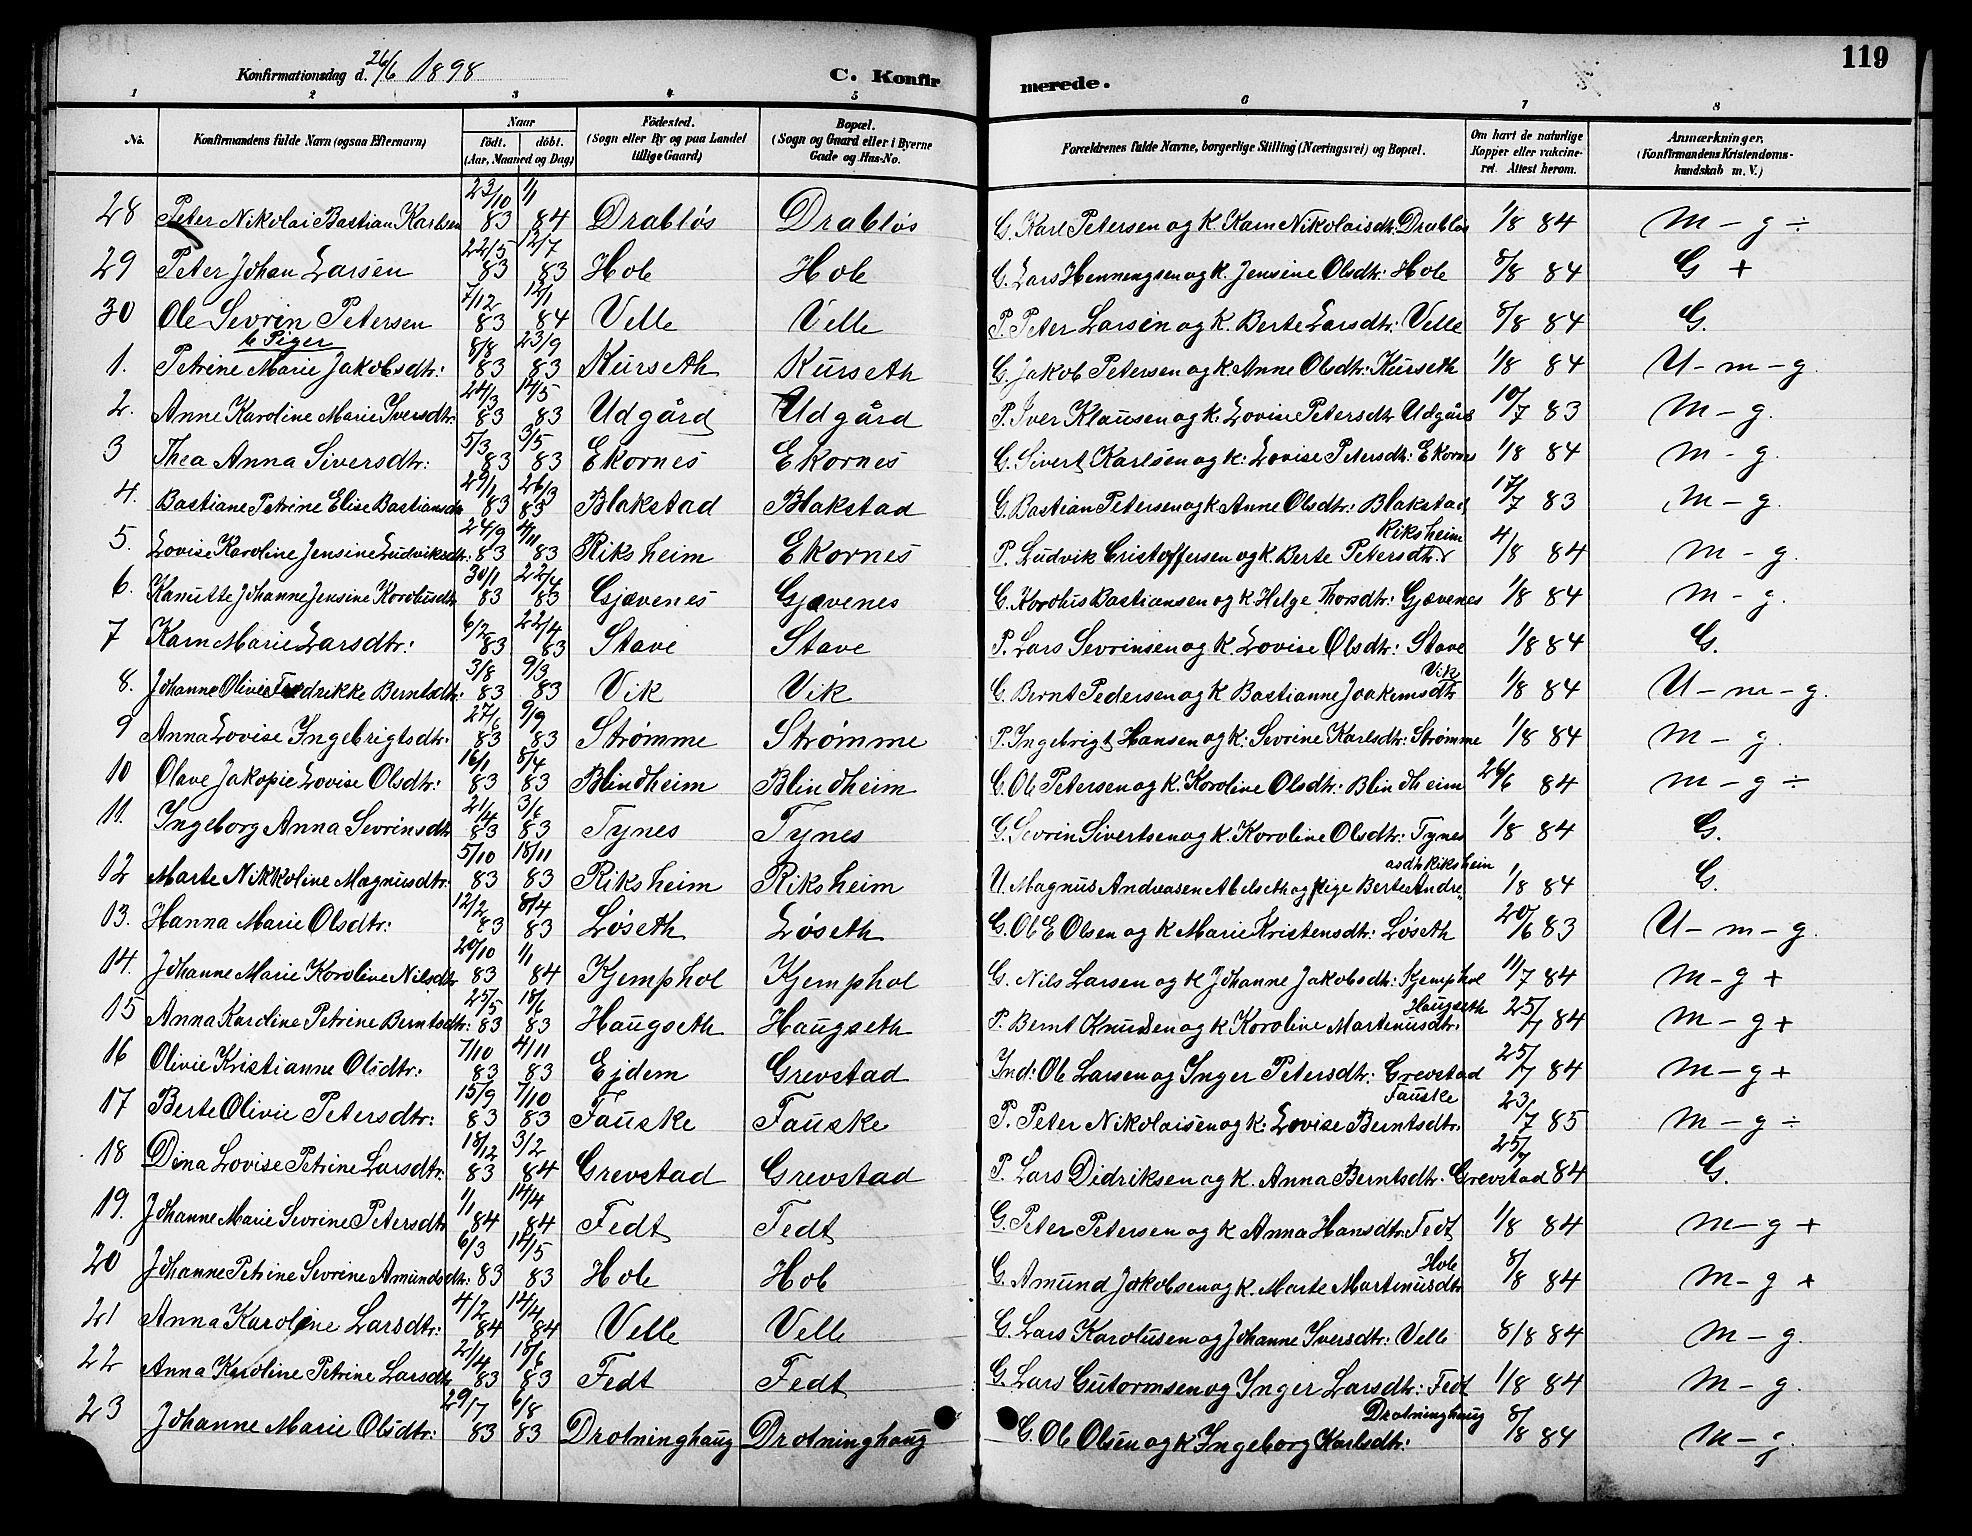 119
Konfirmationsdag d. 26/6 1898
C. Konfirmerede.
1 2 3 4 5 6 7 8
No. | Konfirmandens fulde Navn (ogsaa Efternavn) | Naar født. døbt. (Aar, Maaned og Dag) | Fødested. (Sogn eller By og paa Landet tillige Gaard) | Bopæl. (Sogn og Gaard eller i Byerne Gade og Hus-No. | Forældrenes fulde Navne, borgerlige Stilling (Næringsvei) og Bopæl. | Om havt de naturlige Kopper eller vakcineret. Attest herom. | Anmærkninger, (Konfirmandens Kristendomskundskab m. V.)
28 Peter Nikolai Bastian Karlsen 23/10 83 1/1 84 Drabløs Drabløs G. Karl Petersen og K. Karn Nikolaisdtr: Drabløs 1/8 84 M - g ÷
29 Peter Johan Larsen 22/5 83 12/7 83 Hole Hole G. Lars Henningsen og K. Jensine Olsdtr: Hole 8/8 84 G +
30 Ole Sevrin Petersen 7/12 83 12/1 84 Velle Velle P. Peter Larsen og K. Berte Larsdtr: Velle 8/8 84 G.
b Piger
1. Petrine Marie Jakobsdtr: 8/8 83 23/9 83 Kurseth Kurseth G. Jakob Petersen og K. Anne Olsdtr: Kurseth 1/8 84 U - m - g.
2. Anne Karoline Marie Iversdtr: 24/3 83 14/5 83 Udgård Udgård P. Iver Klausen og K. Lovise Petersdtr Udgård 10/7 83 M - g.
3 Thea Anna Siversdtr: 5/3 83 3/5 83 Ekornes Ekornes G. Sivert Karlsen og K: Lovise Petersdtr: Ekornes 1/8 84 m - g.
4. Bastiane Petrine Elise Bastiansdtr 29/1 83 26/3 83 Blakstad Blakstad G. Bastian Petersen og K Anne Olsdtr: Blakstad 17/7 83 M - g.
5. Lovise Karoline Jensine Ludviksdtr: 24/9 83 4/11 83 Riksheim Ekornes P. Ludvik Cristoffersen og K. Berte Petersdtr. Riksheim 4/8 84 m - g.
6. Kanutte Johanne Jensine Korolusdtr 30/1 83 22/4 83 Gjævenes Gjævenes G. Korolus Bastiansen og K. Helge Thorsdtr: Gjævenes 1/8 84 m - g.
7 Karn Marie Larsdtr: 6/2 83 22/4 83 Stave Stave P. Lars Sevrinsen og K. Lovise Olsdtr: Stave 1/8 84 G.
8. Johanne Olivie Fredrikke Berntsdtr: 3/8 83 9/3 83 Vik Vik G. Bernt Pedersen og K Bastianne Joakimsdtr Vik 1/8 84 U - m - g.
9 Anna Lovise Ingebrigtsdtr: 27/6 83 9/9 83 Strømme Strømme P. Ingebrigt Hansen og K: Sevrine Karlsdtr: Strømme 1/8 84 M - g.
10 Olave Jakopie Lovise Olsdtr: 16/1 83 8/4 83 Blindheim Blindheim G. Ole Petersen og K. Koroline Olsdtr: Blindheim 26/6 84 m - g ÷
11. Ingeborg Anna Sevrinsdtr 21/4 83 3/6 83 Tynes Tynes G. Sevrin Sivertsen og K. Koroline Olsdtr: Tynes 1/8 84 G.
12 Marte Nikkoline Magnusdtr: 5/10 83 18/11 83 Riksheim Riksheim U. Magnus Andreasen Abelseth og pige Berte Andreasdtr Riksheim 1/8 84 G.
13. Hanna Marie Olsdtr: 12/2 83 8/4 83 Løseth Løseth G. Ole E Olsen og K Marie Kristensdtr: Løseth 20/6 83 U - m - g.
14. Johanne Marie Koroline Nilsdtr 20/10 83 1/1 84 Kjemphol Kjemphol G. Nils Larsen og K Johanne Jakobsdtr: Kjemphol 11/7 84 m - g +
15 Anna Karoline Petrine Berntsdtr: 25/5 83 18/6 83 Haugseth Haugseth P. Bernt Knudsen og K Koroline Martinusdtr: Haugseth 25/7 84 M - g +
16 Olivie Kristianne Olsdtr: 7/10 83 4/11 83 Ejdem Grevstad Ind: Ole Larsen og Inger Petersdtr: Grevstad 25/7 84 M - g +
17 Berte Olivie Petersdtr: 15/9 83 7/10 83 Fauske Fauske P. Peter Nikolaisen og K: Lovise Berntsdtr. Fauske 23/7 85 m - g ÷
18 Dina Lovise Petrine Larsdtr. 18/12 83 3/2 84 Grevstad Grevstad P. Lars Didriksen og K. Anna Berntsdtr. Grevstad 25/7 84 G.
19. Johanne Marie Sevrine Petersdtr 1/1 84 14/4 84 Fedt Fedt G. Peter Petersen og K Anna Hansdtr: Fedt 1/8 84 m - g +
20 Johanne Petrine Sevrine Amundsdtr: 6/3 83 14/5 83 Hole Hole G. Amund Jakobsen og K. Marte Martinusdtr Hole 8/8 84 M - g +
21 Anna Karoline Larsdtr: 4/2 84 14/4 84 Velle Velle G. Lars Karolusen og Johanne Iversdtr: Velle 8/8 84 M - g.
22 Anna Karoline Petrine Larsdtr 21/4 83 18/6 83 Fedt Fedt G. Lars Gutormsen og Inger Larsdtr: Fedt 1/8 84 M - g.
23 Johanne Marie Olsdtr: 29/7 83 6/8 83 Drotninghaug Drotninghaug G. Ole Olsen og K Ingeborg Karlsdtr: Drotninghaug 8/8 84 M - g.